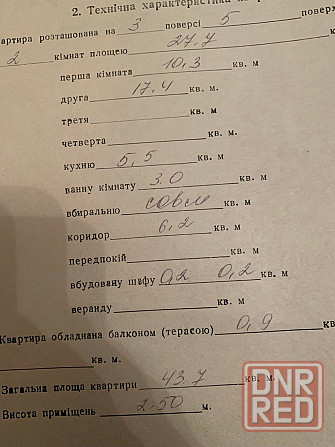 2. Технічна характеристика
вартира розташована на 3 поверсі 5
2 кімнат площею 27,7
перша кімната 10,3 кв. м
друга 17,4 кв. м.
третя кв. м
четверта кв. м.
кухню 5,5 кв. м
ванну кімнату 3.0 кв. м
вбиральню совм кв. м
коридор 6,2 кв. м
передпокій кв. м
вбудовану шафу 0,2 0,2 кв. м
веранду кв. м
Квартира обладнана балконом (терасою) 0,9 кв
кв. м.
Загальна площа квартири 43.7 кв. м.
Висота приміщень 2.50 м.
DNR
RED